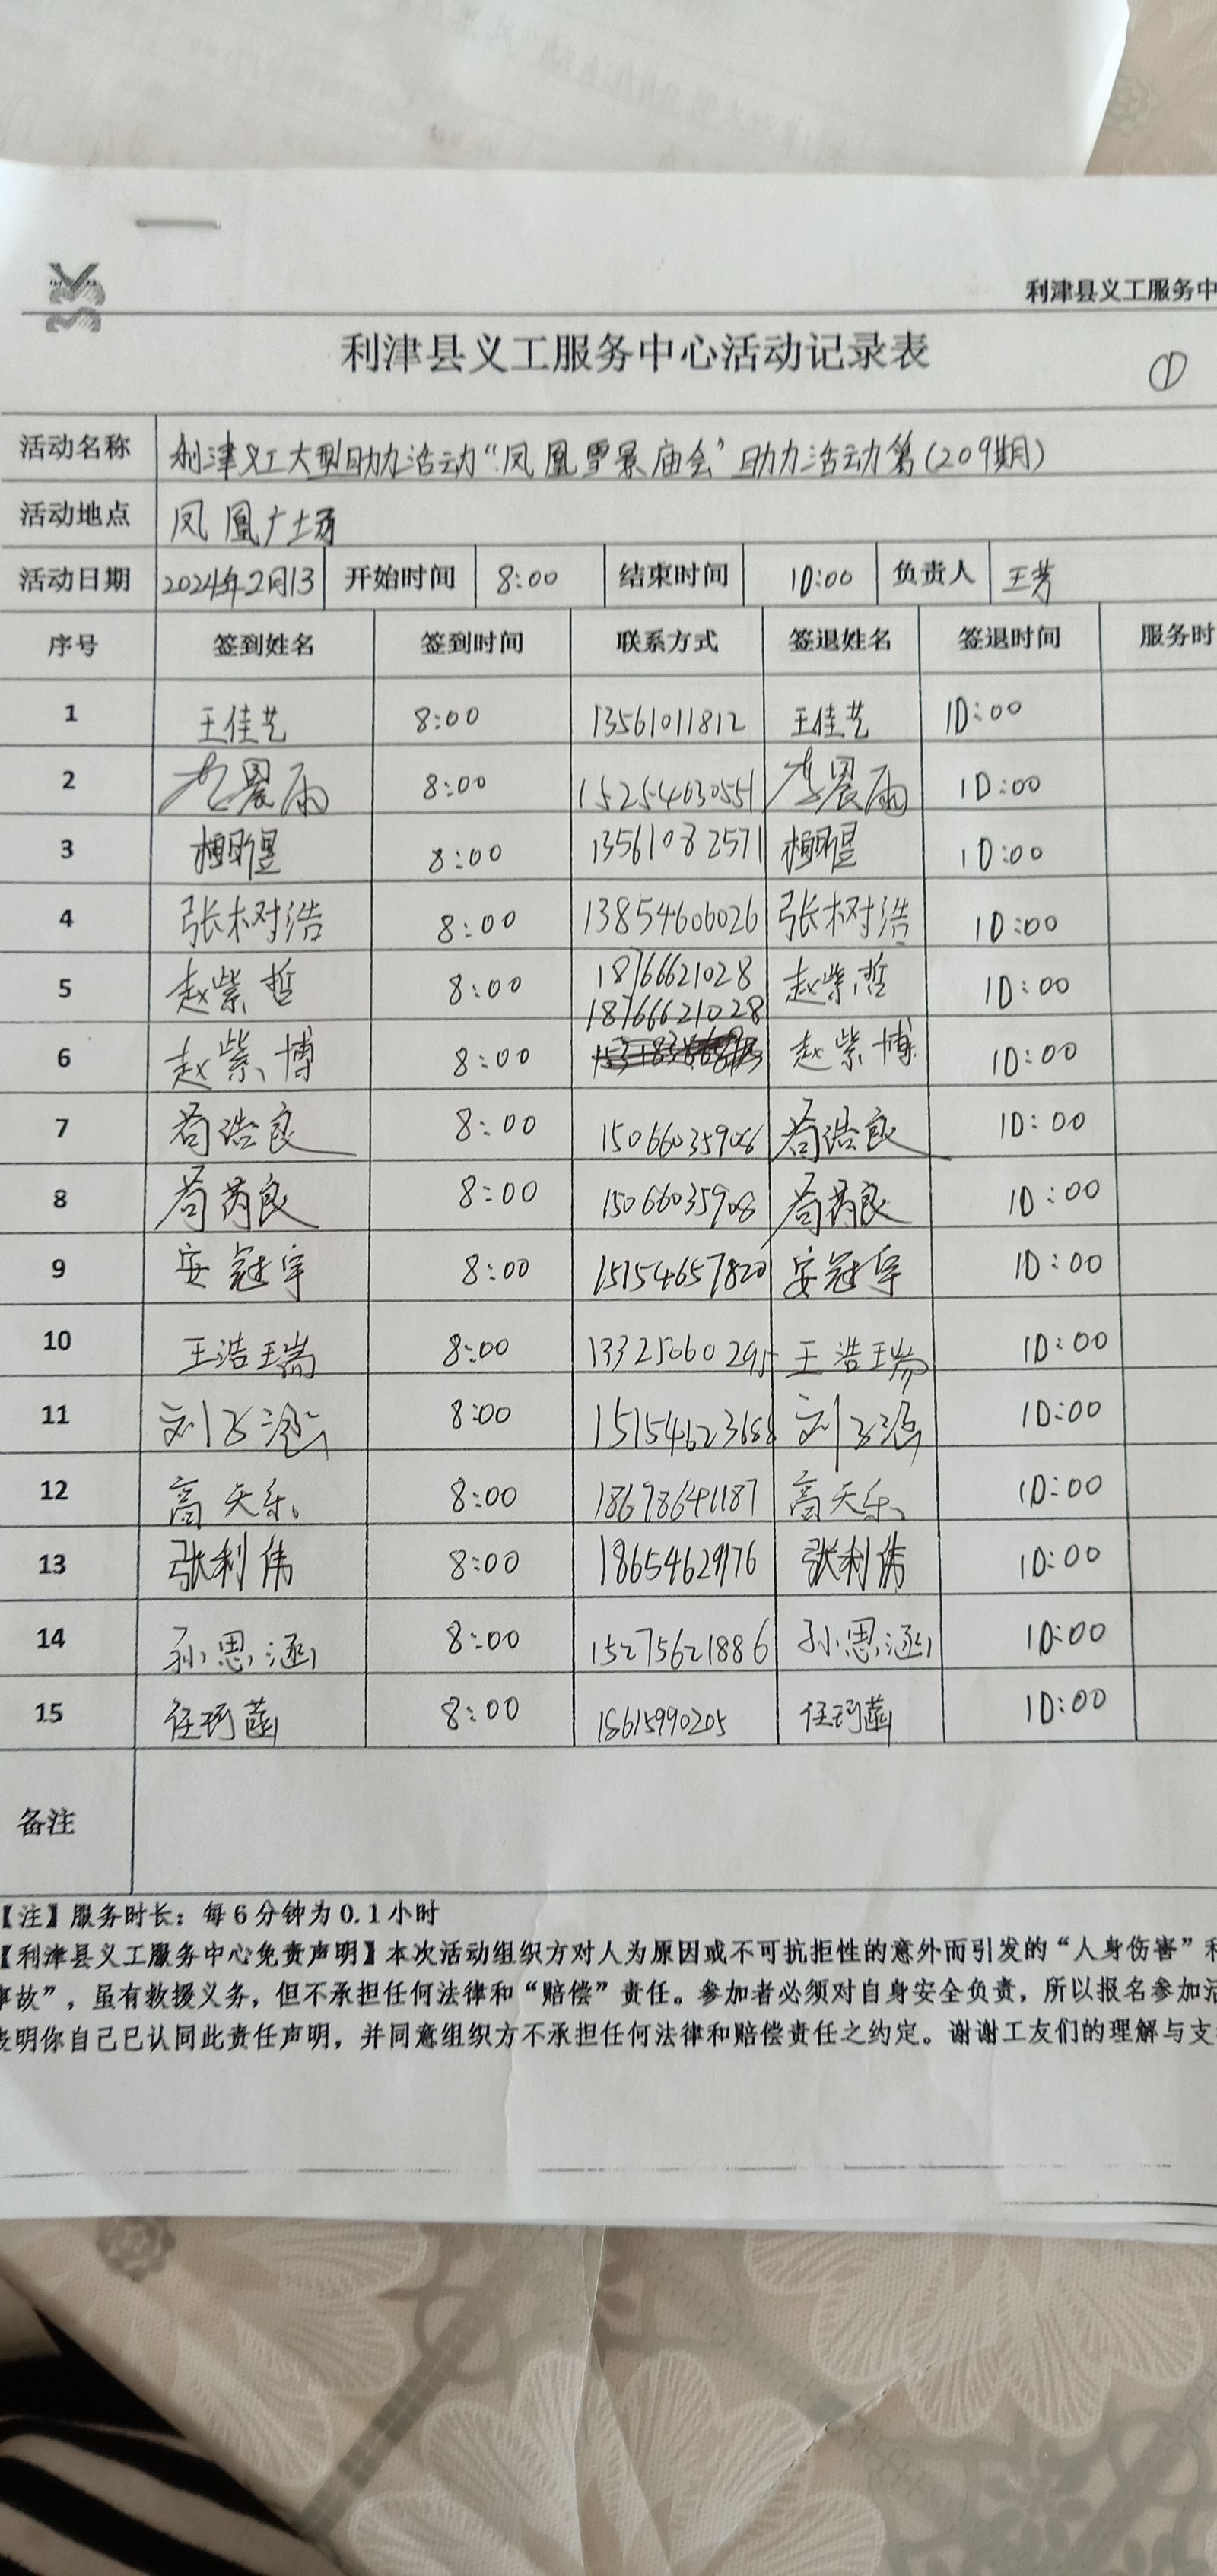 利津县义工服务中
利津县义工服务中心活动记录表
①
活动名称 利津义工大型助力活动“凤凰雪景庙会”助力活动第(209期)
活动地点 凤凰广场
活动日期 2024年2月13 开始时间 8:00 结束时间 10:00 负责人 王芳
序号 签到姓名 签到时间 联系方式 签退姓名 签退时间 服务时
1 王佳艺 8:00 13561011812 王佳艺 10:00
2 晨雨 8:00 15254630551 晨雨 10:00
3 8:00 13561082571 10:00
4 张树浩 8:00 13854606026 张树浩 10:00
5 赵紫哲 8:00 18766621028 赵紫哲 10:00
18766621028
6 赵紫博 8:00 赵紫博 10:00
7 苟浩良 8:00 苟浩良 10:00
8 苟芮良 8:00 15066035908 苟芮良 10:00
9 安冠宇 8:00 15154657820 安冠宇 10:00
10 王浩瑞 8:00 13325060295 王浩瑞 10:00
11 刘 8:00 15154623688 刘 10:00
12 高天乐 8:00 18678641187 高天乐 10:00
13 张利伟 8:00 18654629176 张利伟 10:00
14 孙思涵 8:00 15275621886 孙思涵 10:00
15 任珂菡 8:00 18615990205 任珂菡 10:00
备注
【注】服务时长：每6分钟为0.1小时
【利津县义工服务中心免责声明】本次活动组织方对人为原因或不可抗拒性的意外而引发的“人身伤害”和
事故”，虽有救援义务，但不承担任何法律和“赔偿”责任。参加者必须对自身安全负责，所以报名参加活
表明你自己已认同此责任声明，并同意组织方不承担任何法律和赔偿责任之约定。谢谢工友们的理解与支